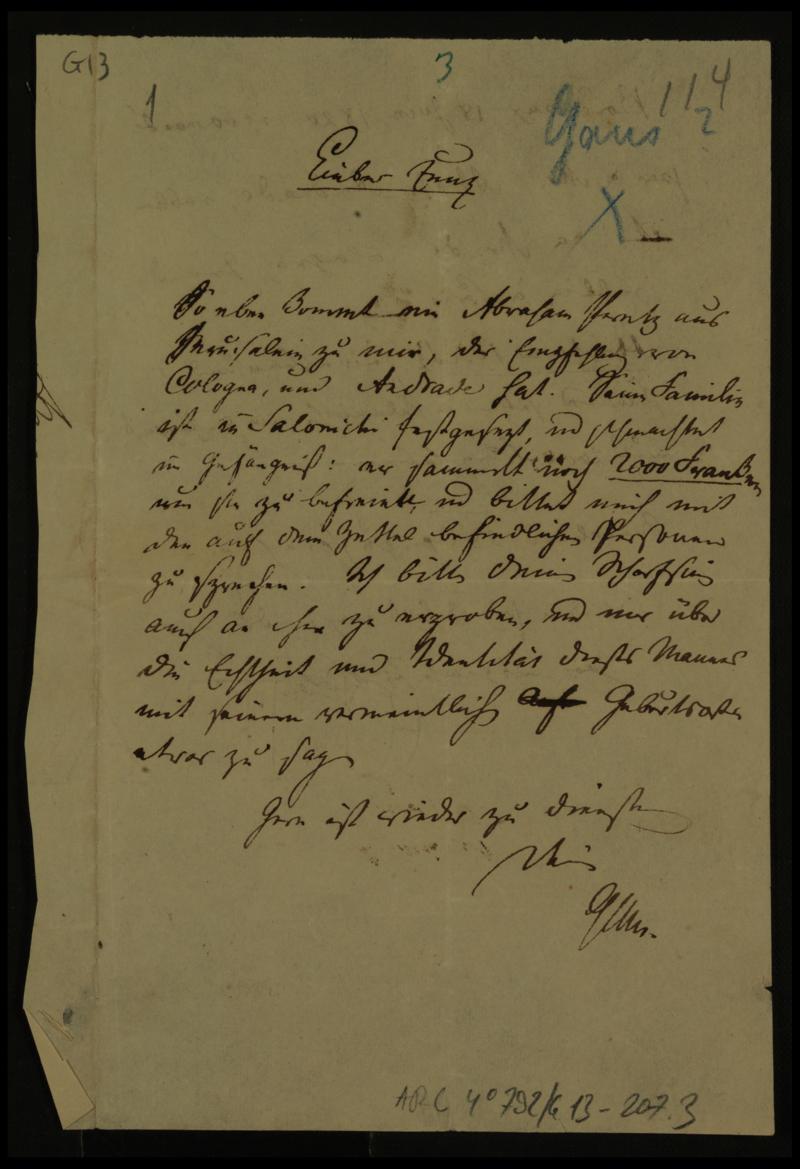 G13
3
1
114
2
Gans
X
Lieber Zunz
So eben kommt ein Abraham Peretz aus
Jerusalem zu mir, der Empfehlung von
Cologna, und Andrade hat. Seine Familie
ist in Salonichi festgesetzt, und schmachtet
im Gefängniß: er sammelt noch 2000 Franken
um sie zu befreien und bittet mich mit
den auf dem Zettel befindlichen Personen
zu sprechen. Ich bitte deinen Scharfsinn
auch an ihm zu erproben, und mir über
die Echtheit und Identität dieses Mannes
mit seinem vermeintlichen Geburtsorte
etwas zu sagen
Gern ist wieder zu Diensten
Dein
Gans.
ARC 4° 792/G 13-207.3